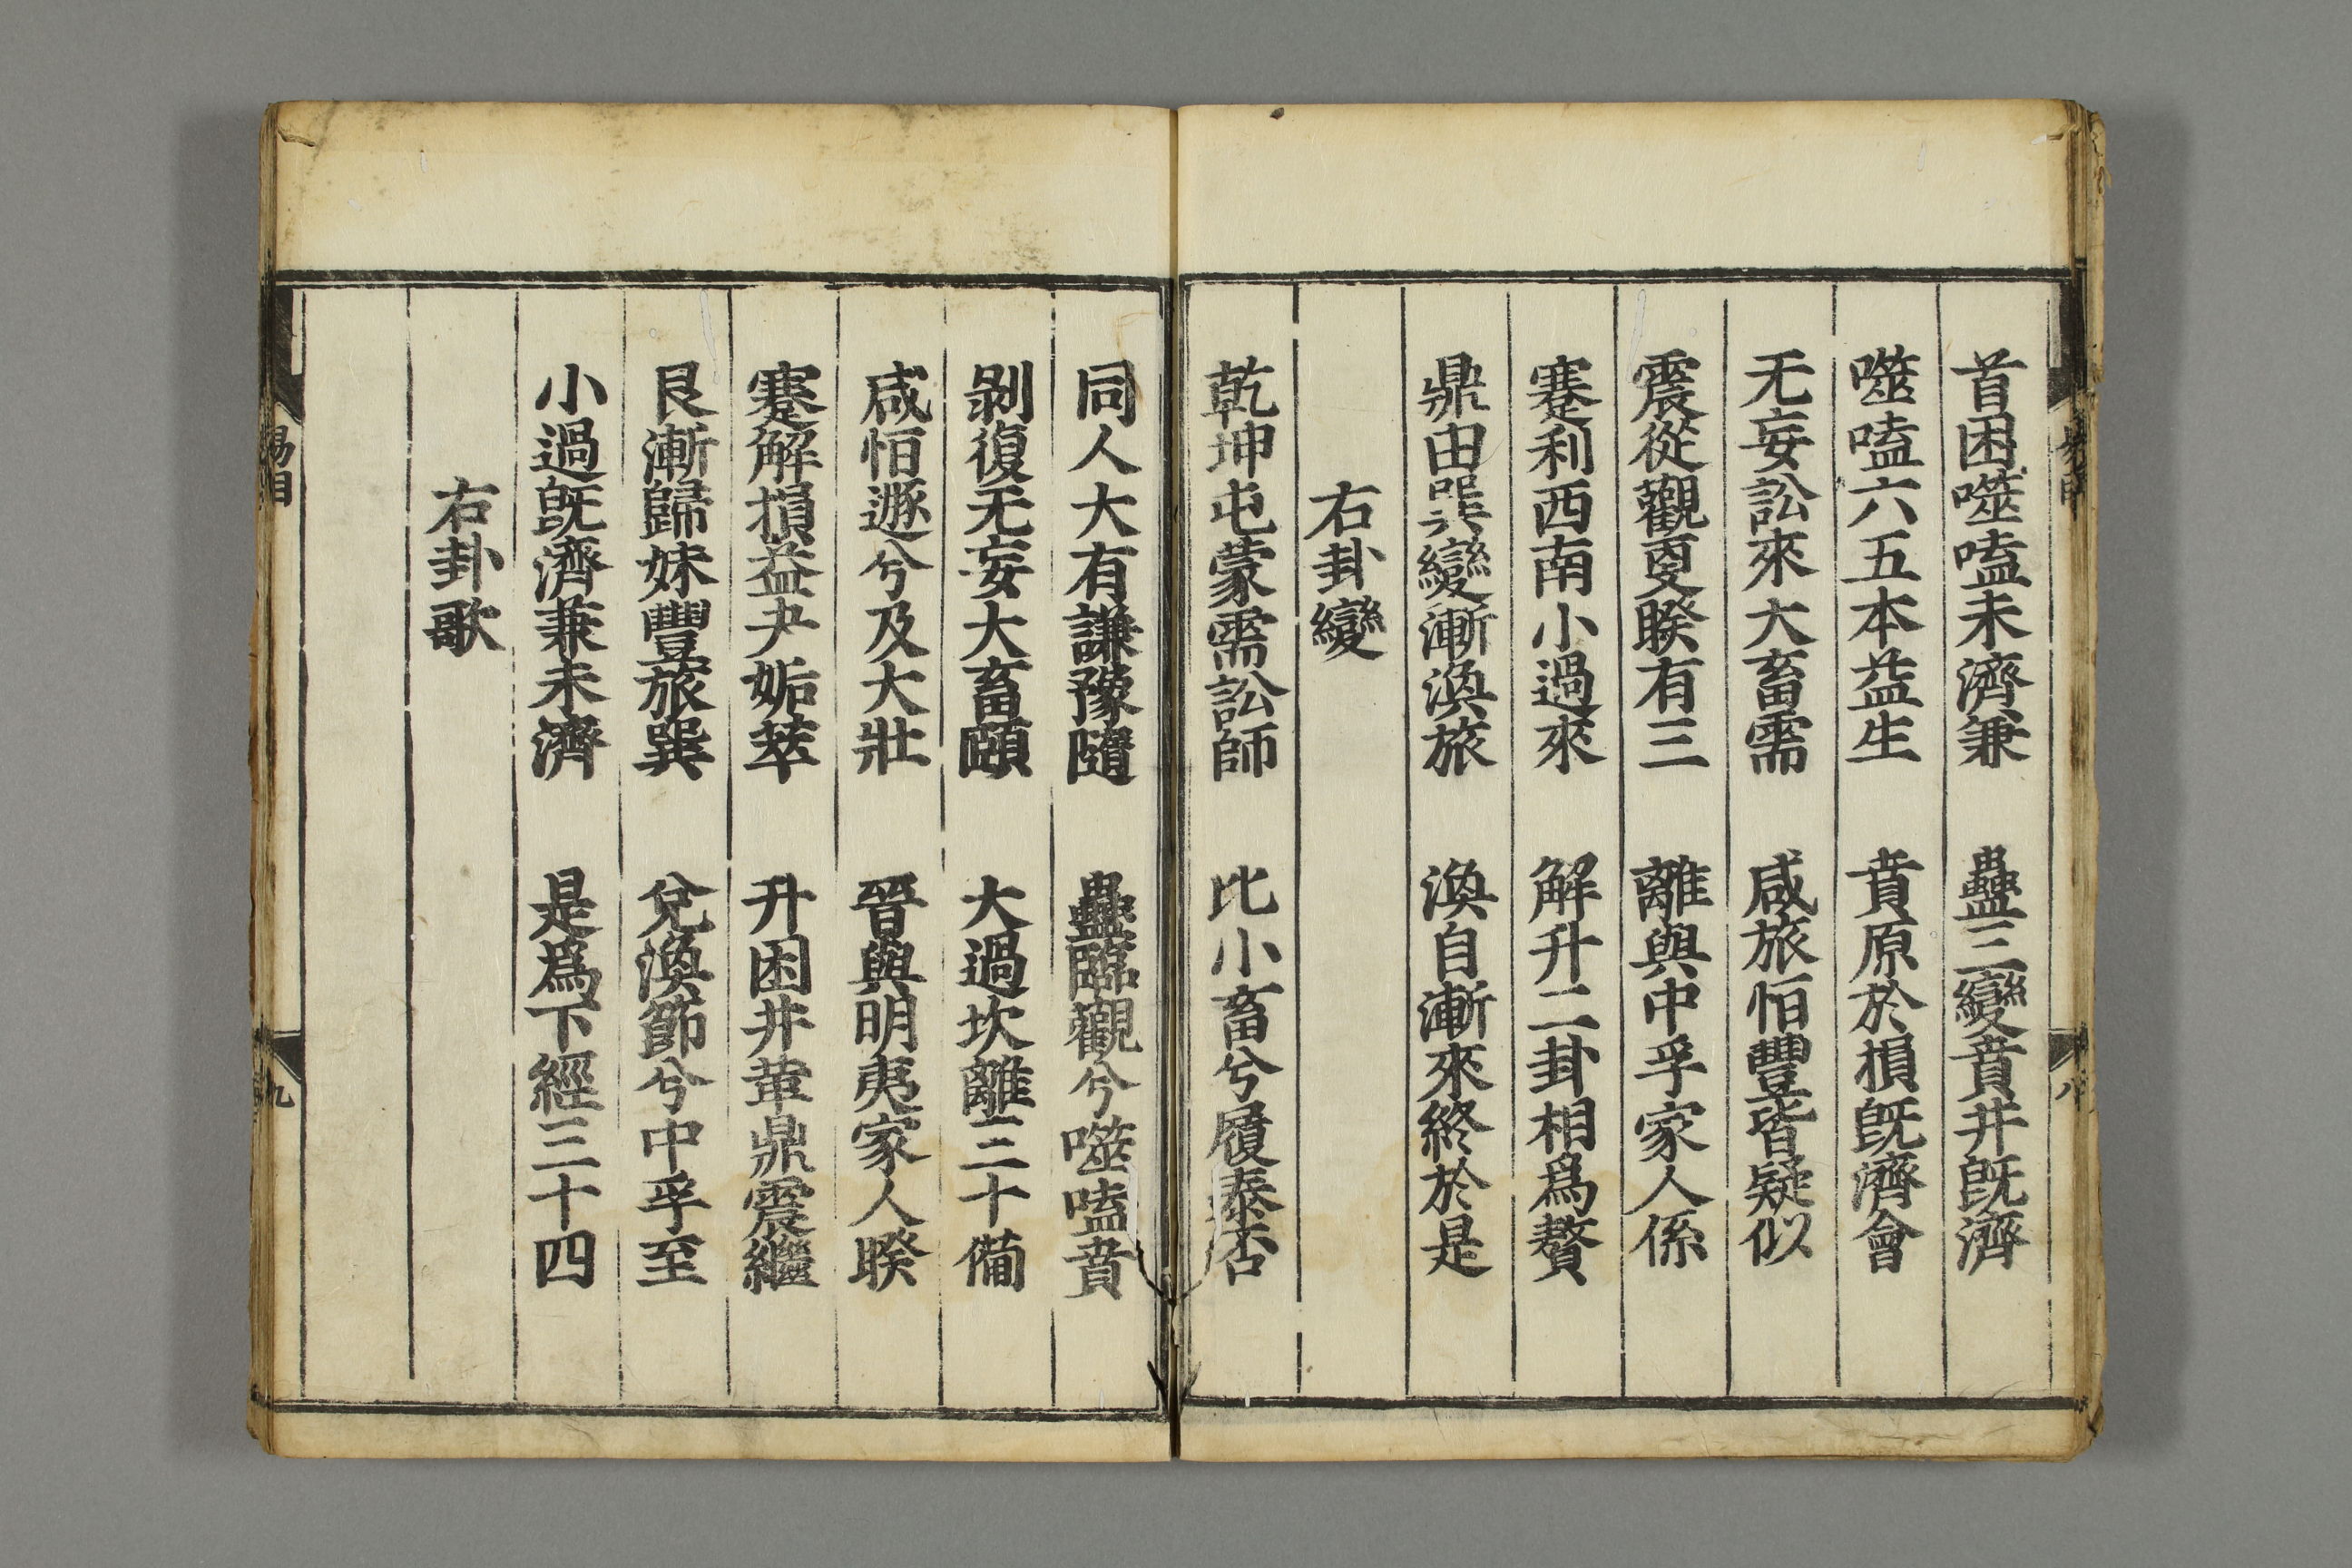 首困噬嗑未濟兼　蠱三變賁井旣濟
噬嗑六五本益生　賁原於損旣濟會
无妄訟來大畜需　咸旅恒豐皆疑似
震從觀更睽有三　離與中孚家人係
蹇利西南小過來　解升二卦相爲贅
鼎由巽變漸渙旅　渙自漸來終於是
右卦變
乾坤屯蒙需訟師　比小畜兮履泰否
同人大有謙豫隨　蠱臨觀兮噬嗑賁
剝復无妄大畜頤　大過坎離三十備
咸恒遯兮及大壯　晉與明夷家人睽
蹇解損益夬姤萃　升困井革鼎震繼
艮漸歸妹豐旅巽　兌渙節兮中孚至
小過旣濟兼未濟　是爲下經三十四
右卦歌
八
九